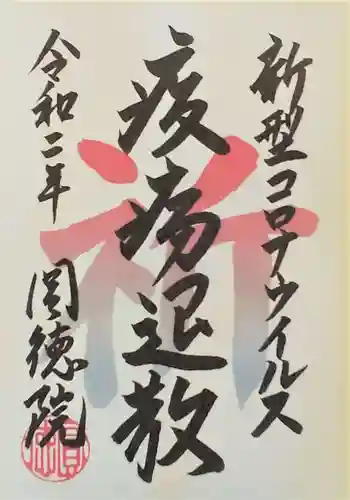 新型コロナウイルス
疫病退散
令和二年
圓徳院
祈